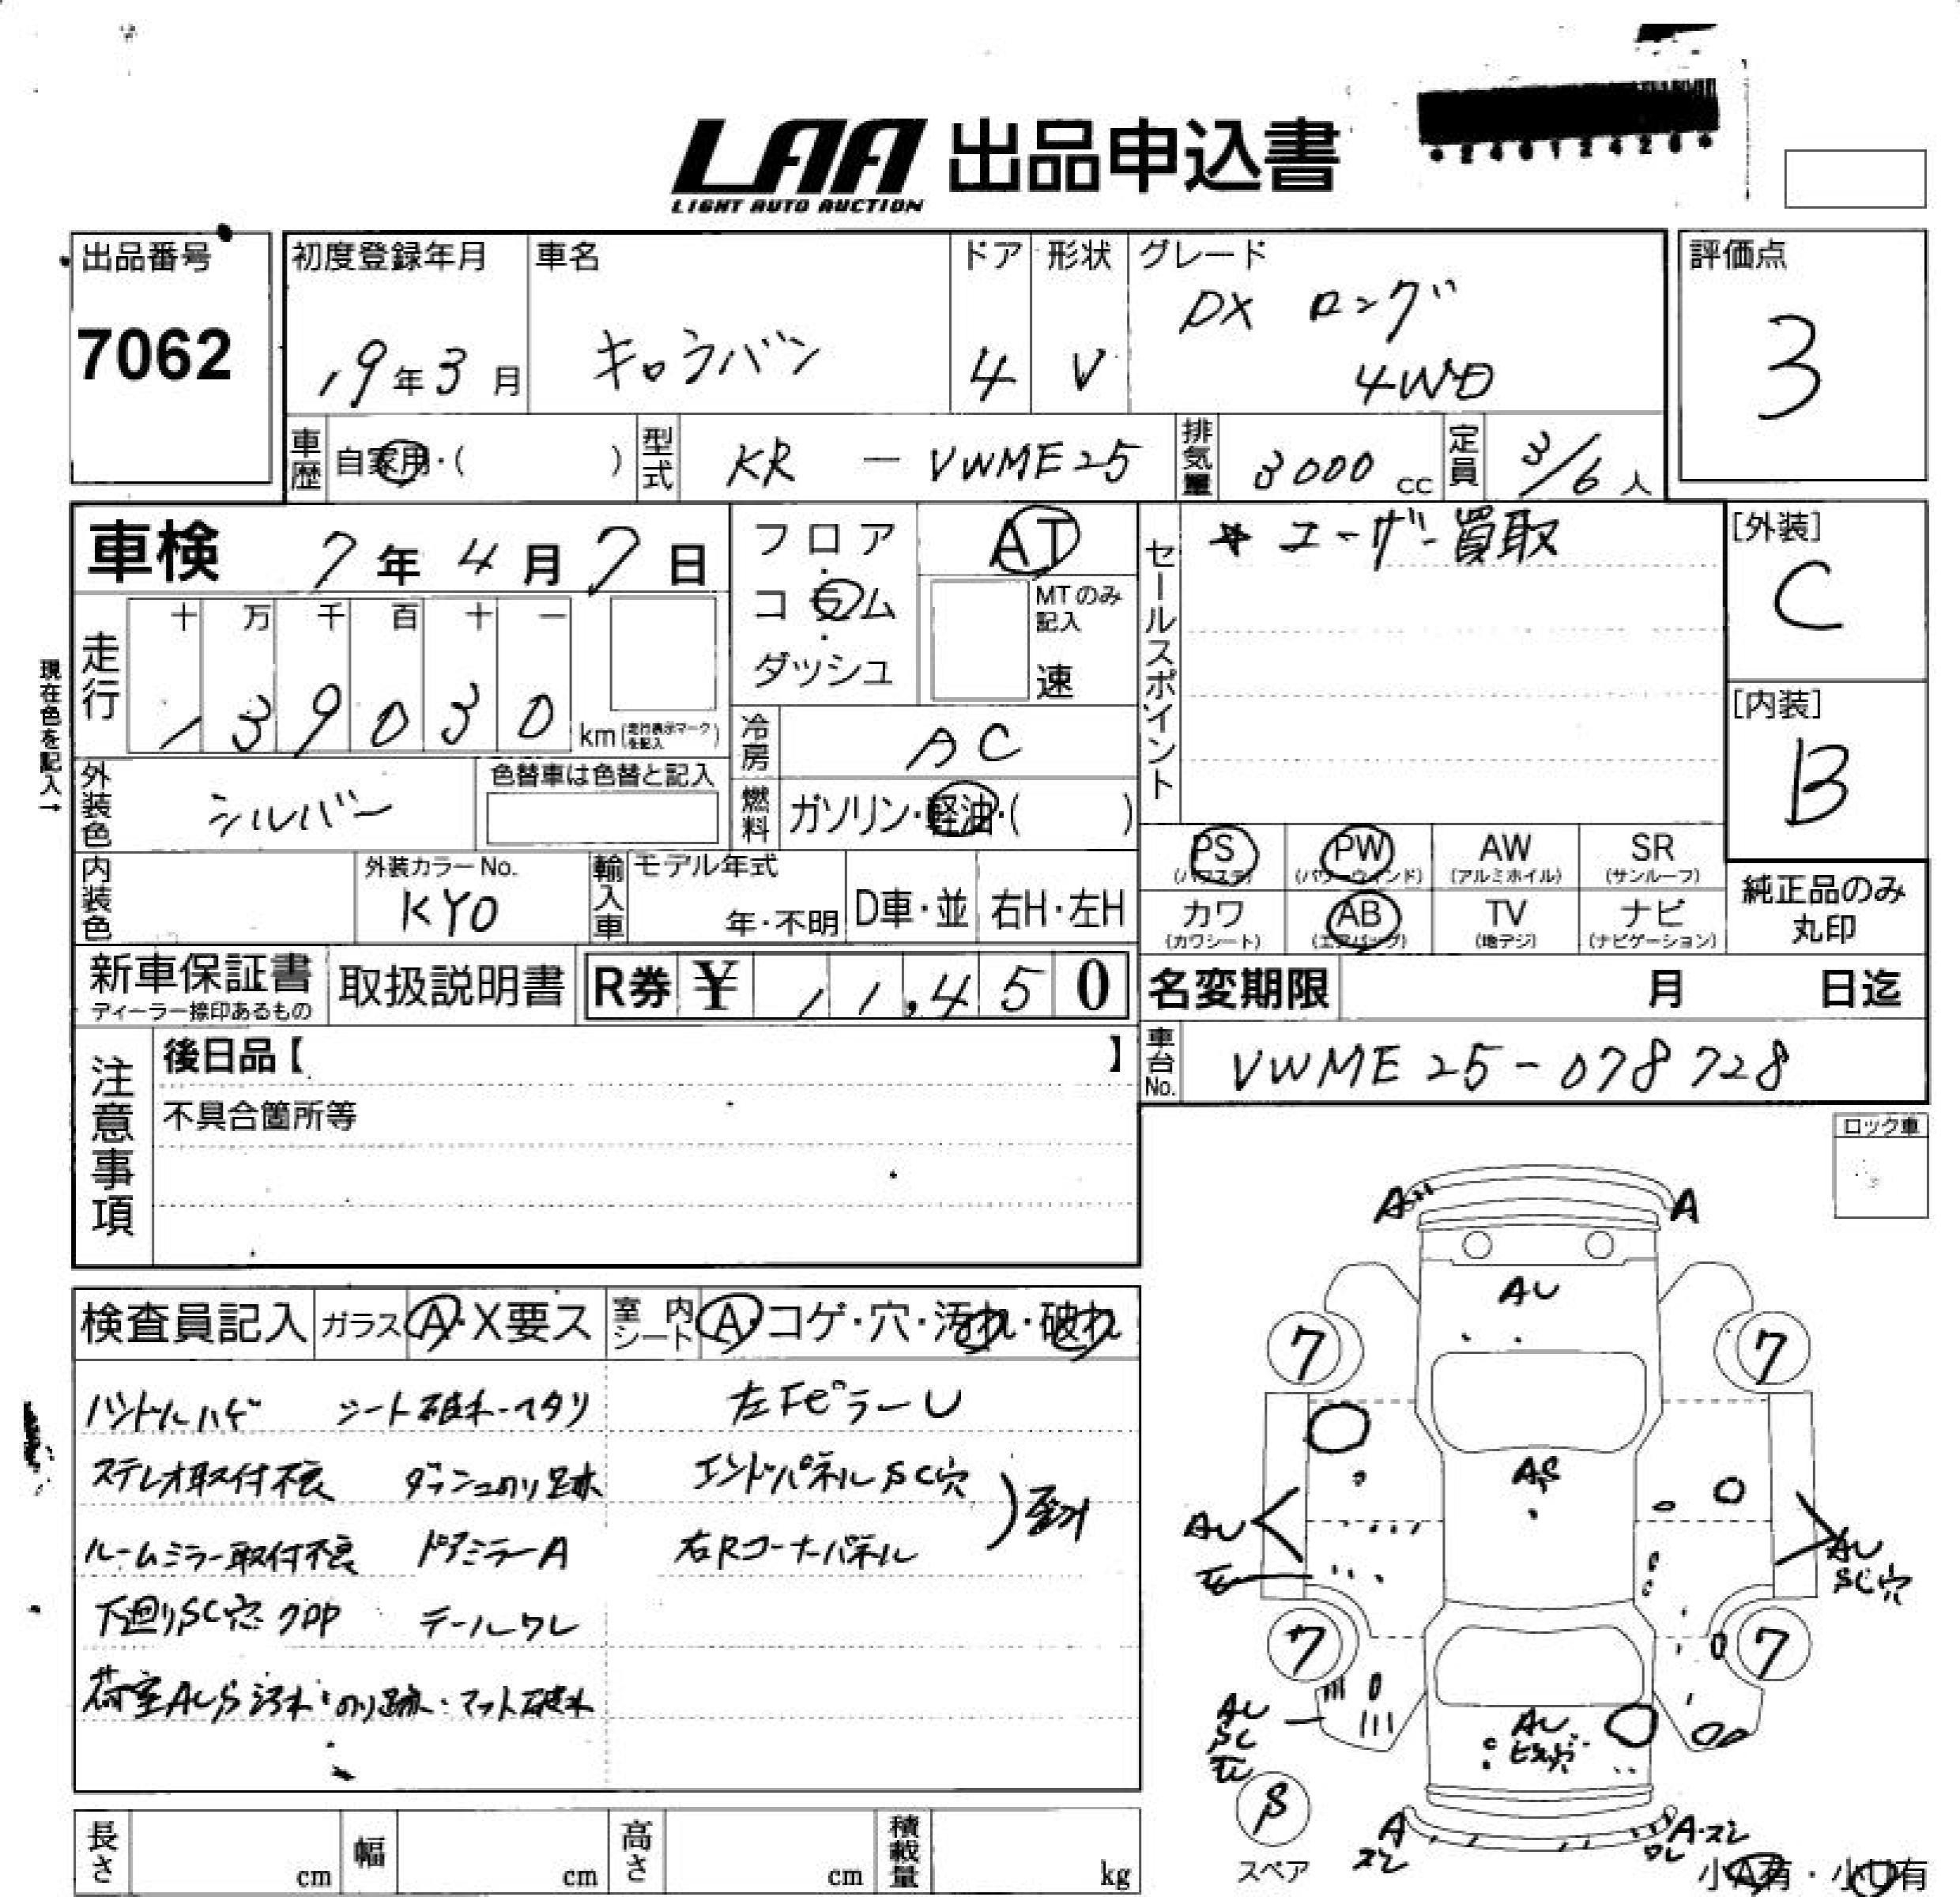 LAA 出品申込書
LIGHT AUTO AUCTION
出品番号
7062
初度登録年月
19年3月
車名
キャラバン
ドア
4
形状
V
グレード
DX ロング
4WD
評価点
3
車歴
自家用・( )
型式
KR - VWME25
排気量
3000 cc
定員
3/6 人
車検 7年4月7日
現在色を記入→
走行
十 万 千 百 十 一
1 3 9 0 3 0 km (走行表示マークを記入)
フロア
・
コラム
・
ダッシュ
AT
MTのみ
記入
速
冷房
AC
燃料
ガソリン・軽油・( )
セールスポイント
* ユーザー買取
[外装]
C
[内装]
B
外装色
シルバー
色替車は色替と記入
内装色
外装カラーNo.
KY0
輸入車
モデル年式
年・不明
D車・並
右H・左H
PS (パワステ)
PW (パワーウィンド)
AW (アルミホイル)
SR (サンルーフ)
カワ (カワシート)
AB (エアバッグ)
TV (地デジ)
ナビ (ナビゲーション)
純正品のみ
丸印
新車保証書
ディーラー捺印あるもの
取扱説明書
R券 ¥ 11,450
名変期限 月 日迄
車台No.
VWME25-078728
注意事項
後日品【 】
不具合箇所等
ロック車
検査員記入
ガラス A・X要ス
室内シート A・コゲ・穴・汚れ・破れ
ハンドルハゲ シート破れ・ヘタリ 左Fピラー U
ステレオ取付不良 ダッシュのり跡 エンドパネルSC穴
ルームミラー取付不良 ドアミラーA 右Rコーナーパネル
下廻りSC穴 テールワレ
荷室AUS汚れ・のり跡・マット破れ
A A
AU
7 7
AS
AU
AU
SC穴
7 7
AU
SC
AU
A
スレ
A・スレ
ワレ
スペア
小A有・小U有
長さ cm
幅 cm
高さ cm
積載量 kg